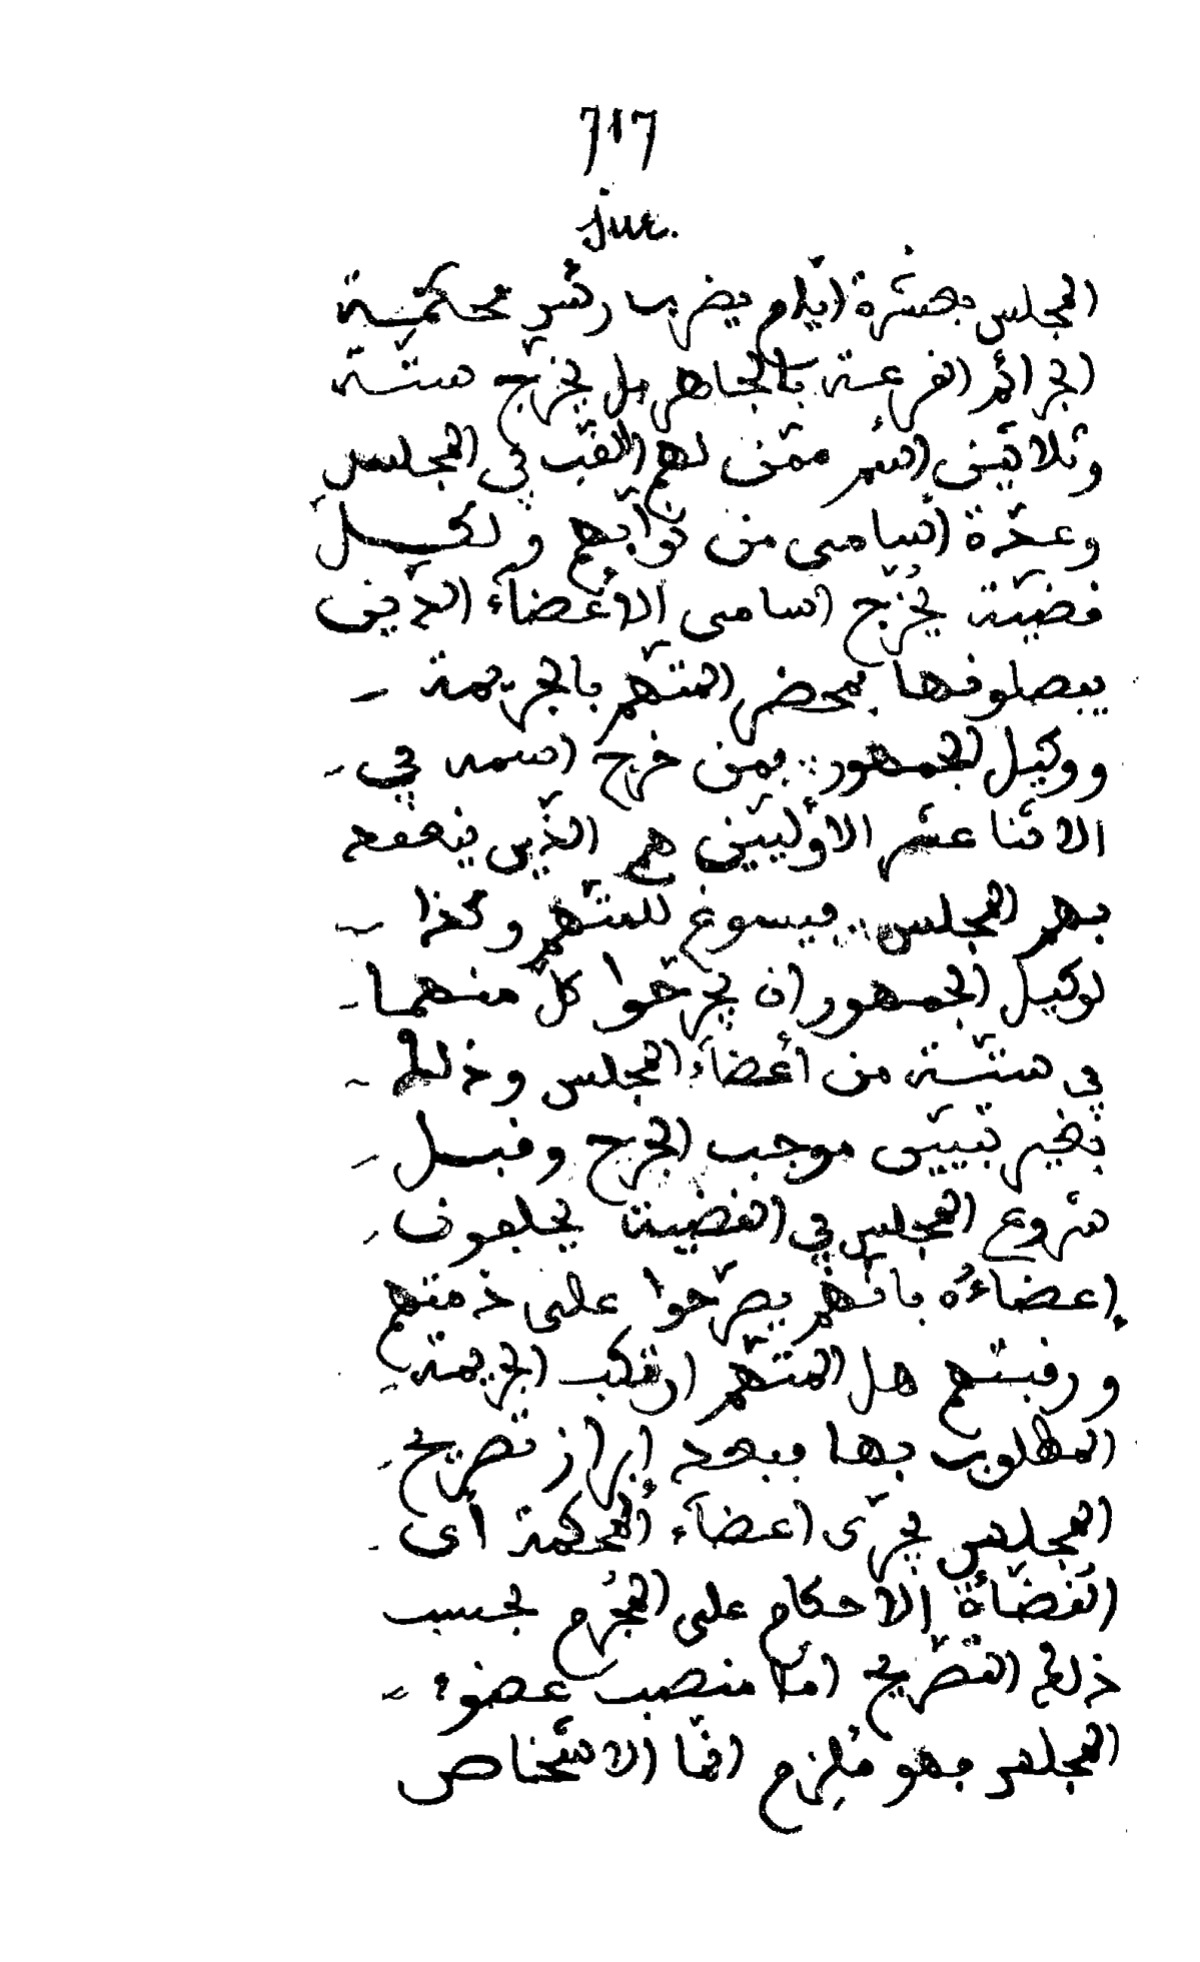 717
jur.
المجلس بعشرة ايّام يضرب رئس محكمـة
الجرائم القرعة بالجاهر بل يخرّج ستّـة
وثلاثين اسم ممّن لهم اللّقب في المجلس
وعدّة اسامى من نوّابهم ولكـل
قضيّة يُخرّج اسامى الأعضآء الّذين
يبصلونها بمحضر المتّهم بالجريمة
ووكيل الجمهور فمن خرج اسمه في
الاثنا عشر الاوّليين هم الّذين ينعقد
بهم المجلس فيسوغ للمتّهم وكذا
لوكيل الجمهور ان يجرّحوا كلّ منهما
في ستّة من اعضآء المجلس وذلك
بغير تبيين موجب الجرح وقبـل
شروع المجلس في القضية يحلفون
اعضاءُه بانّهم يصرّحوا على ذمّتهم
ورقبتهم هل المتّهم ارتكب الجريمة
المطلوب بها فبعد ابراز تصريح
المجلس يجرّى اعضآء المحكمة أى
القضاة الاحكام على المُجرم بحسب
ذلك التّصريح امّا منصب عضو
المجلس فهو مُلزم انّما الاشخاص